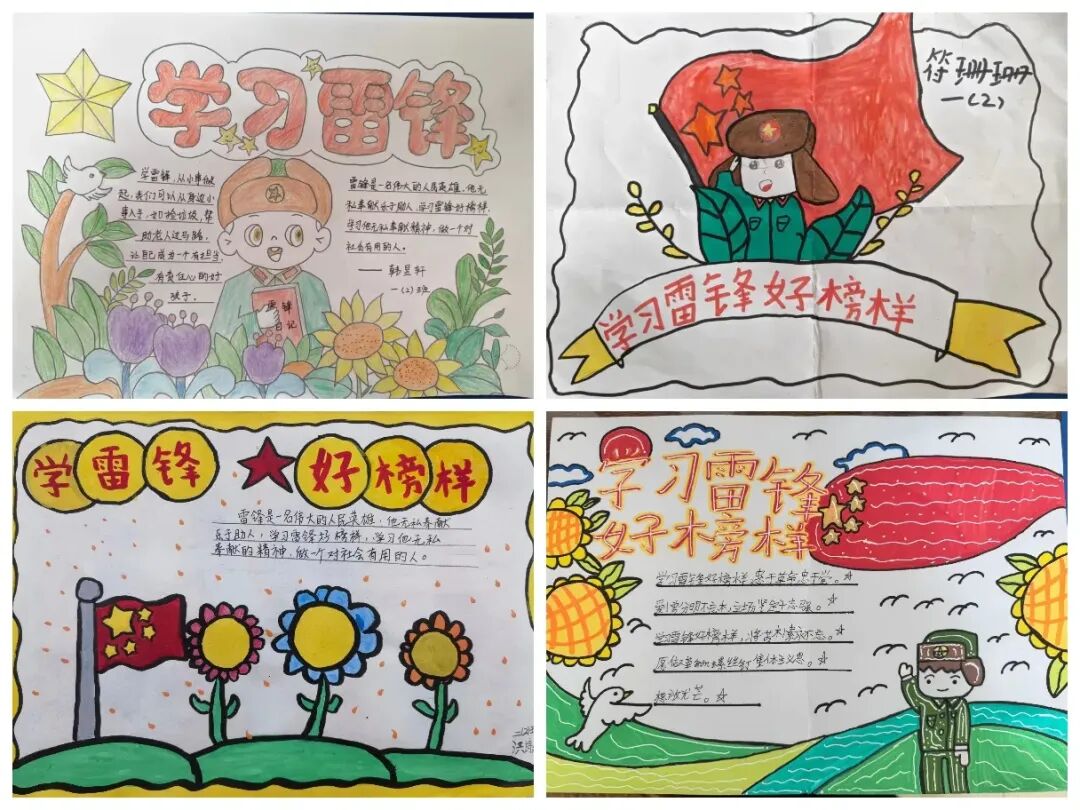 学习雷锋
学雷锋,从小事做
起,我们可以从身边小
事入手,如捡垃圾,帮
助老人过马路,
让自己成为一个有担当,
有责任心的好
孩子.
雷锋是一名伟大的人民英雄,他无
私奉献乐于助人,学习雷锋好榜样,
学习他无私奉献精神,做一个对
社会有用的人。
——韩昱轩
一(2)班
雷锋
日记
符珊珊
一(2)
学习雷锋好榜样
学雷锋★好榜样
雷锋是一名伟大的人民英雄,他无私奉献
乐于助人,学习雷锋好榜样,学习他无私
奉献的精神,做一个对社会有用的人。
学习雷锋
好榜样
学习雷锋好榜样,忠于革命忠于党。☆
爱憎分明不忘本,立场坚定斗志强。☆
学习雷锋好榜样,艰苦朴素永不忘。☆
愿做革命的螺丝钉集体主义思
想放光芒。☆